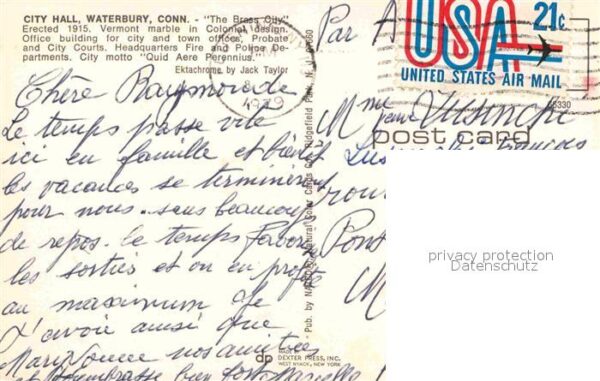 CITY HALL, WATERBURY, CONN. - "The Brass City"
Erected 1915. Vermont marble in Colonial design.
Office building for city and town offices, Probate
and City Courts. Headquarters Fire and Police De-
partments. City motto "Quid Aere Perennius."
Ektachrome by Jack Taylor
Chère Raymonde
Le temps passe vite
ici en famille et bientôt
les vacances se termineront
pour nous. sans beaucoup
de repos. Le temps favorise
les sorties et on en profite
au maximum. Je
t'avoie ainsi que
nos amitiés
et t'embrasse bien fort
Par A
USA 21c
UNITED STATES AIR MAIL
post card
Mme
Pont
M
Pub. by National Color Cards Co., Ridgefield Park, N. J. 07660
dp
DEXTER PRESS, INC.
WEST NYACK, NEW YORK
privacy protection
Datenschutz